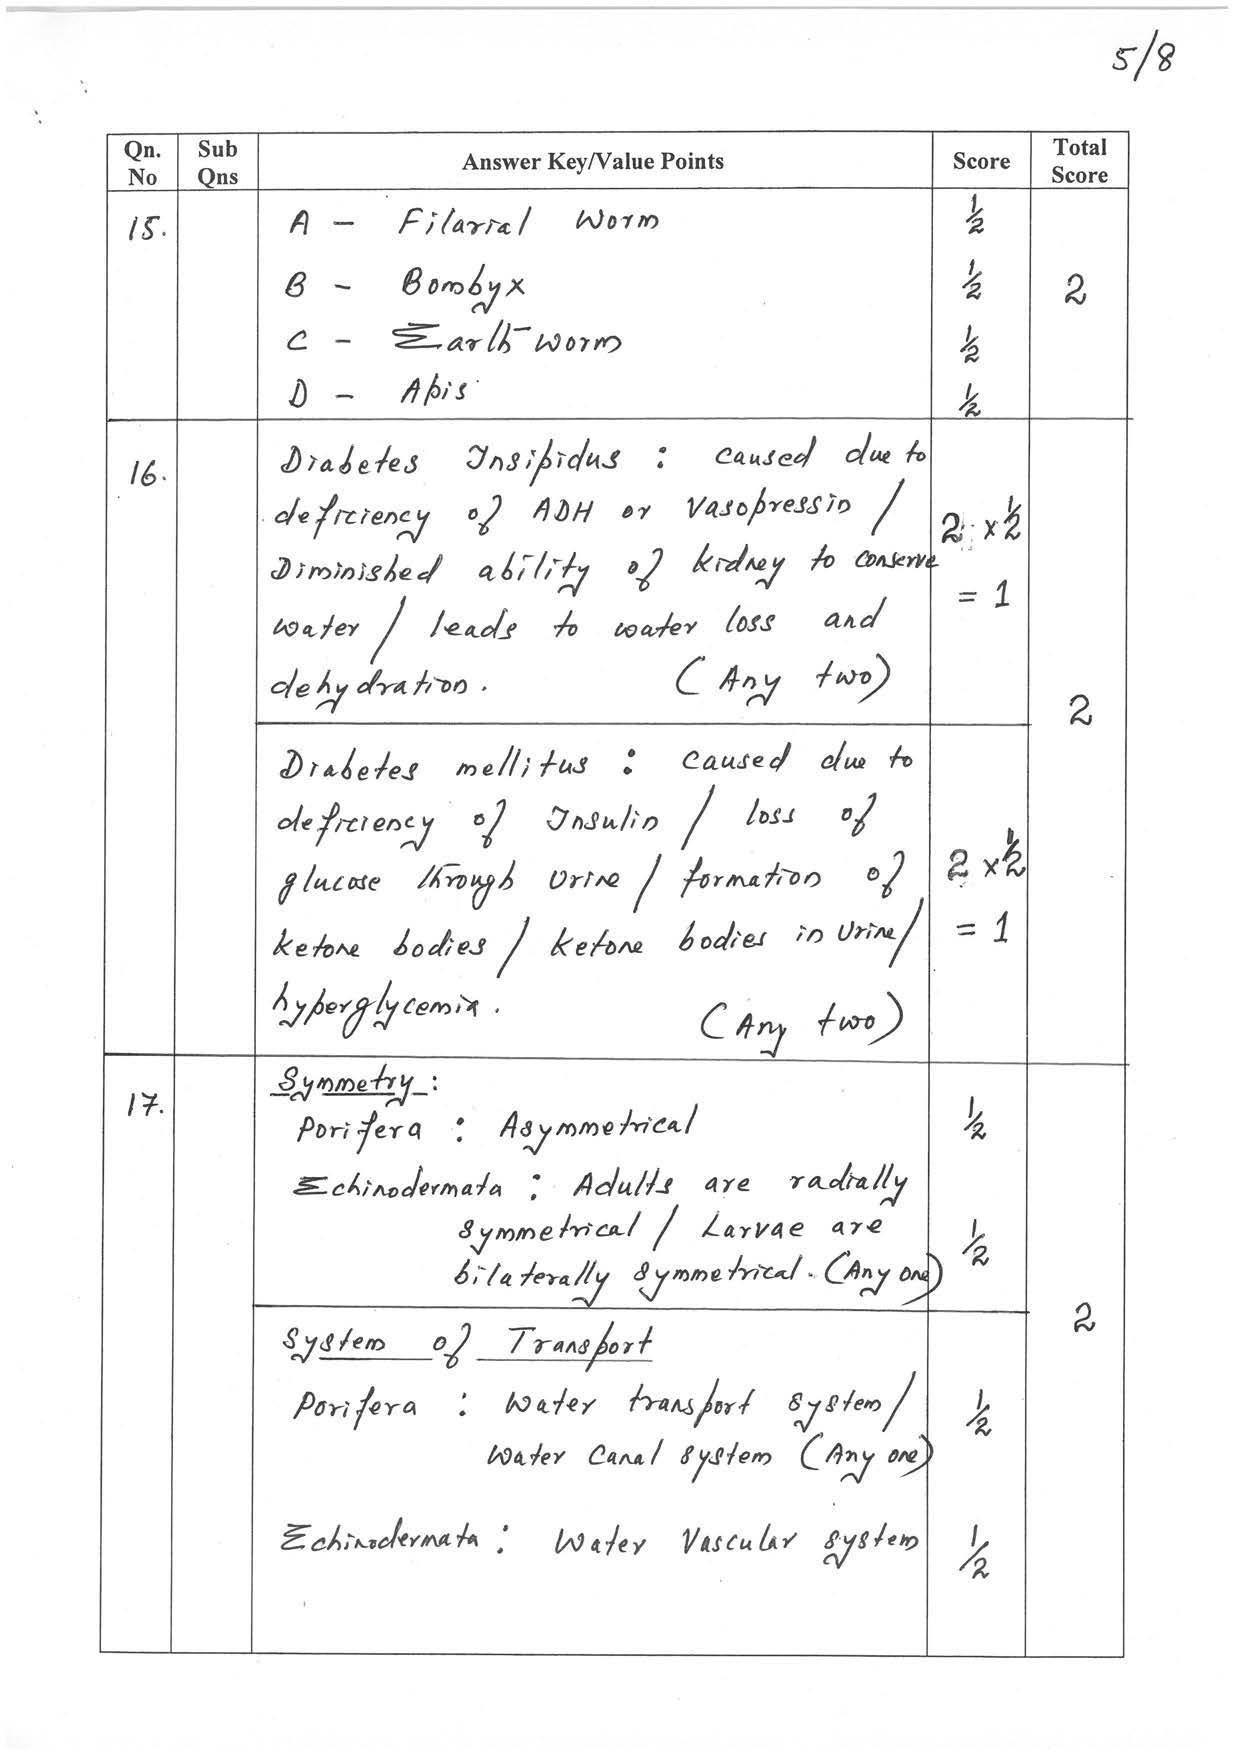 5/8
Qn. No Sub Qns Answer Key/Value Points Score Total Score
15. A - Filarial Worm ½
B - Bombyx ½ 2
C - Earth worm ½
D - Apis ½
16. Diabetes Insipidus : caused due to
deficiency of ADH or Vasopressin /
Diminished ability of kidney to conserve
water / leads to water loss and
dehydration. (Any two)
2 x ½
= 1
2
Diabetes mellitus : caused due to
deficiency of Insulin / loss of
glucose through Urine / formation of
ketone bodies / ketone bodies in Urine /
hyperglycemia. (Any two)
2 x ½
= 1
17. Symmetry :
Porifera : Asymmetrical ½
Echinodermata : Adults are radially
symmetrical / Larvae are
bilaterally symmetrical. (Any one) ½
2
System of Transport
Porifera : Water transport system /
Water Canal system (Any one) ½
Echinodermata : Water Vascular system ½